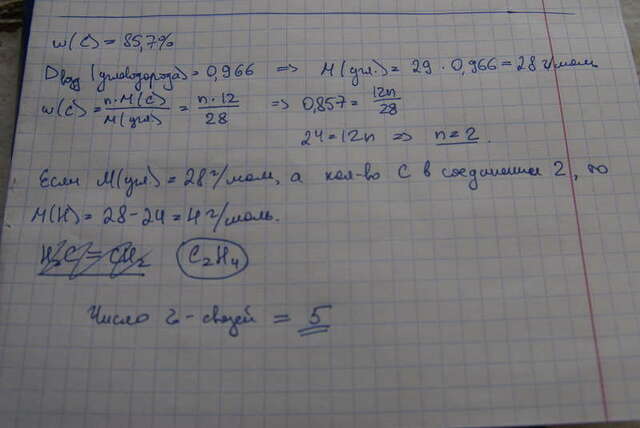 w(C) = 85,7%
Dвозд (углеводорода) = 0,966 => M(угл.) = 29 · 0,966 = 28 г/моль
w(C) = n·M(C)/M(угл) = n·12/28 => 0,857 = 12n/28
24 = 12n => n = 2.
Если M(угл) = 28 г/моль, а кол-во C в соединении 2, то
M(H) = 28 - 24 = 4 г/моль.
H2C = CH2 C2H4
Число σ-связей = 5